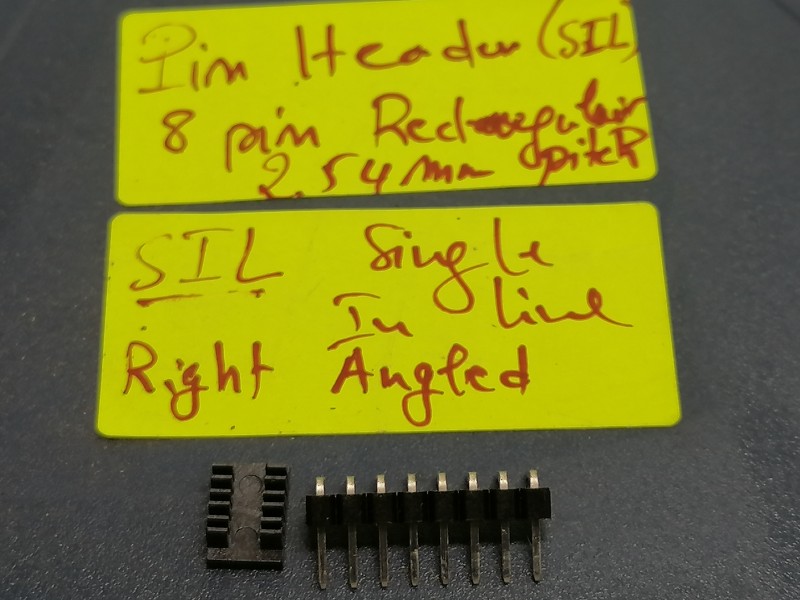 Pin Header (SIL)
8 pin Rectregular
2.54mm pitch
SIL Single
In line
Right Angled